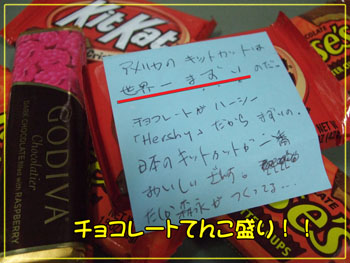 KitKat
アメリカの キットカットは
世界一 まずい のだ。
チョコレートが ハーシー
「Hershy」だから まずいの。
日本の キットカットが 一番
おいしい
だし 森永が つくってる…
GODIVA
Chocolatier
DARK CHOCOLATE filled with
RASPBERRY
チョコレートてんこ盛り！！